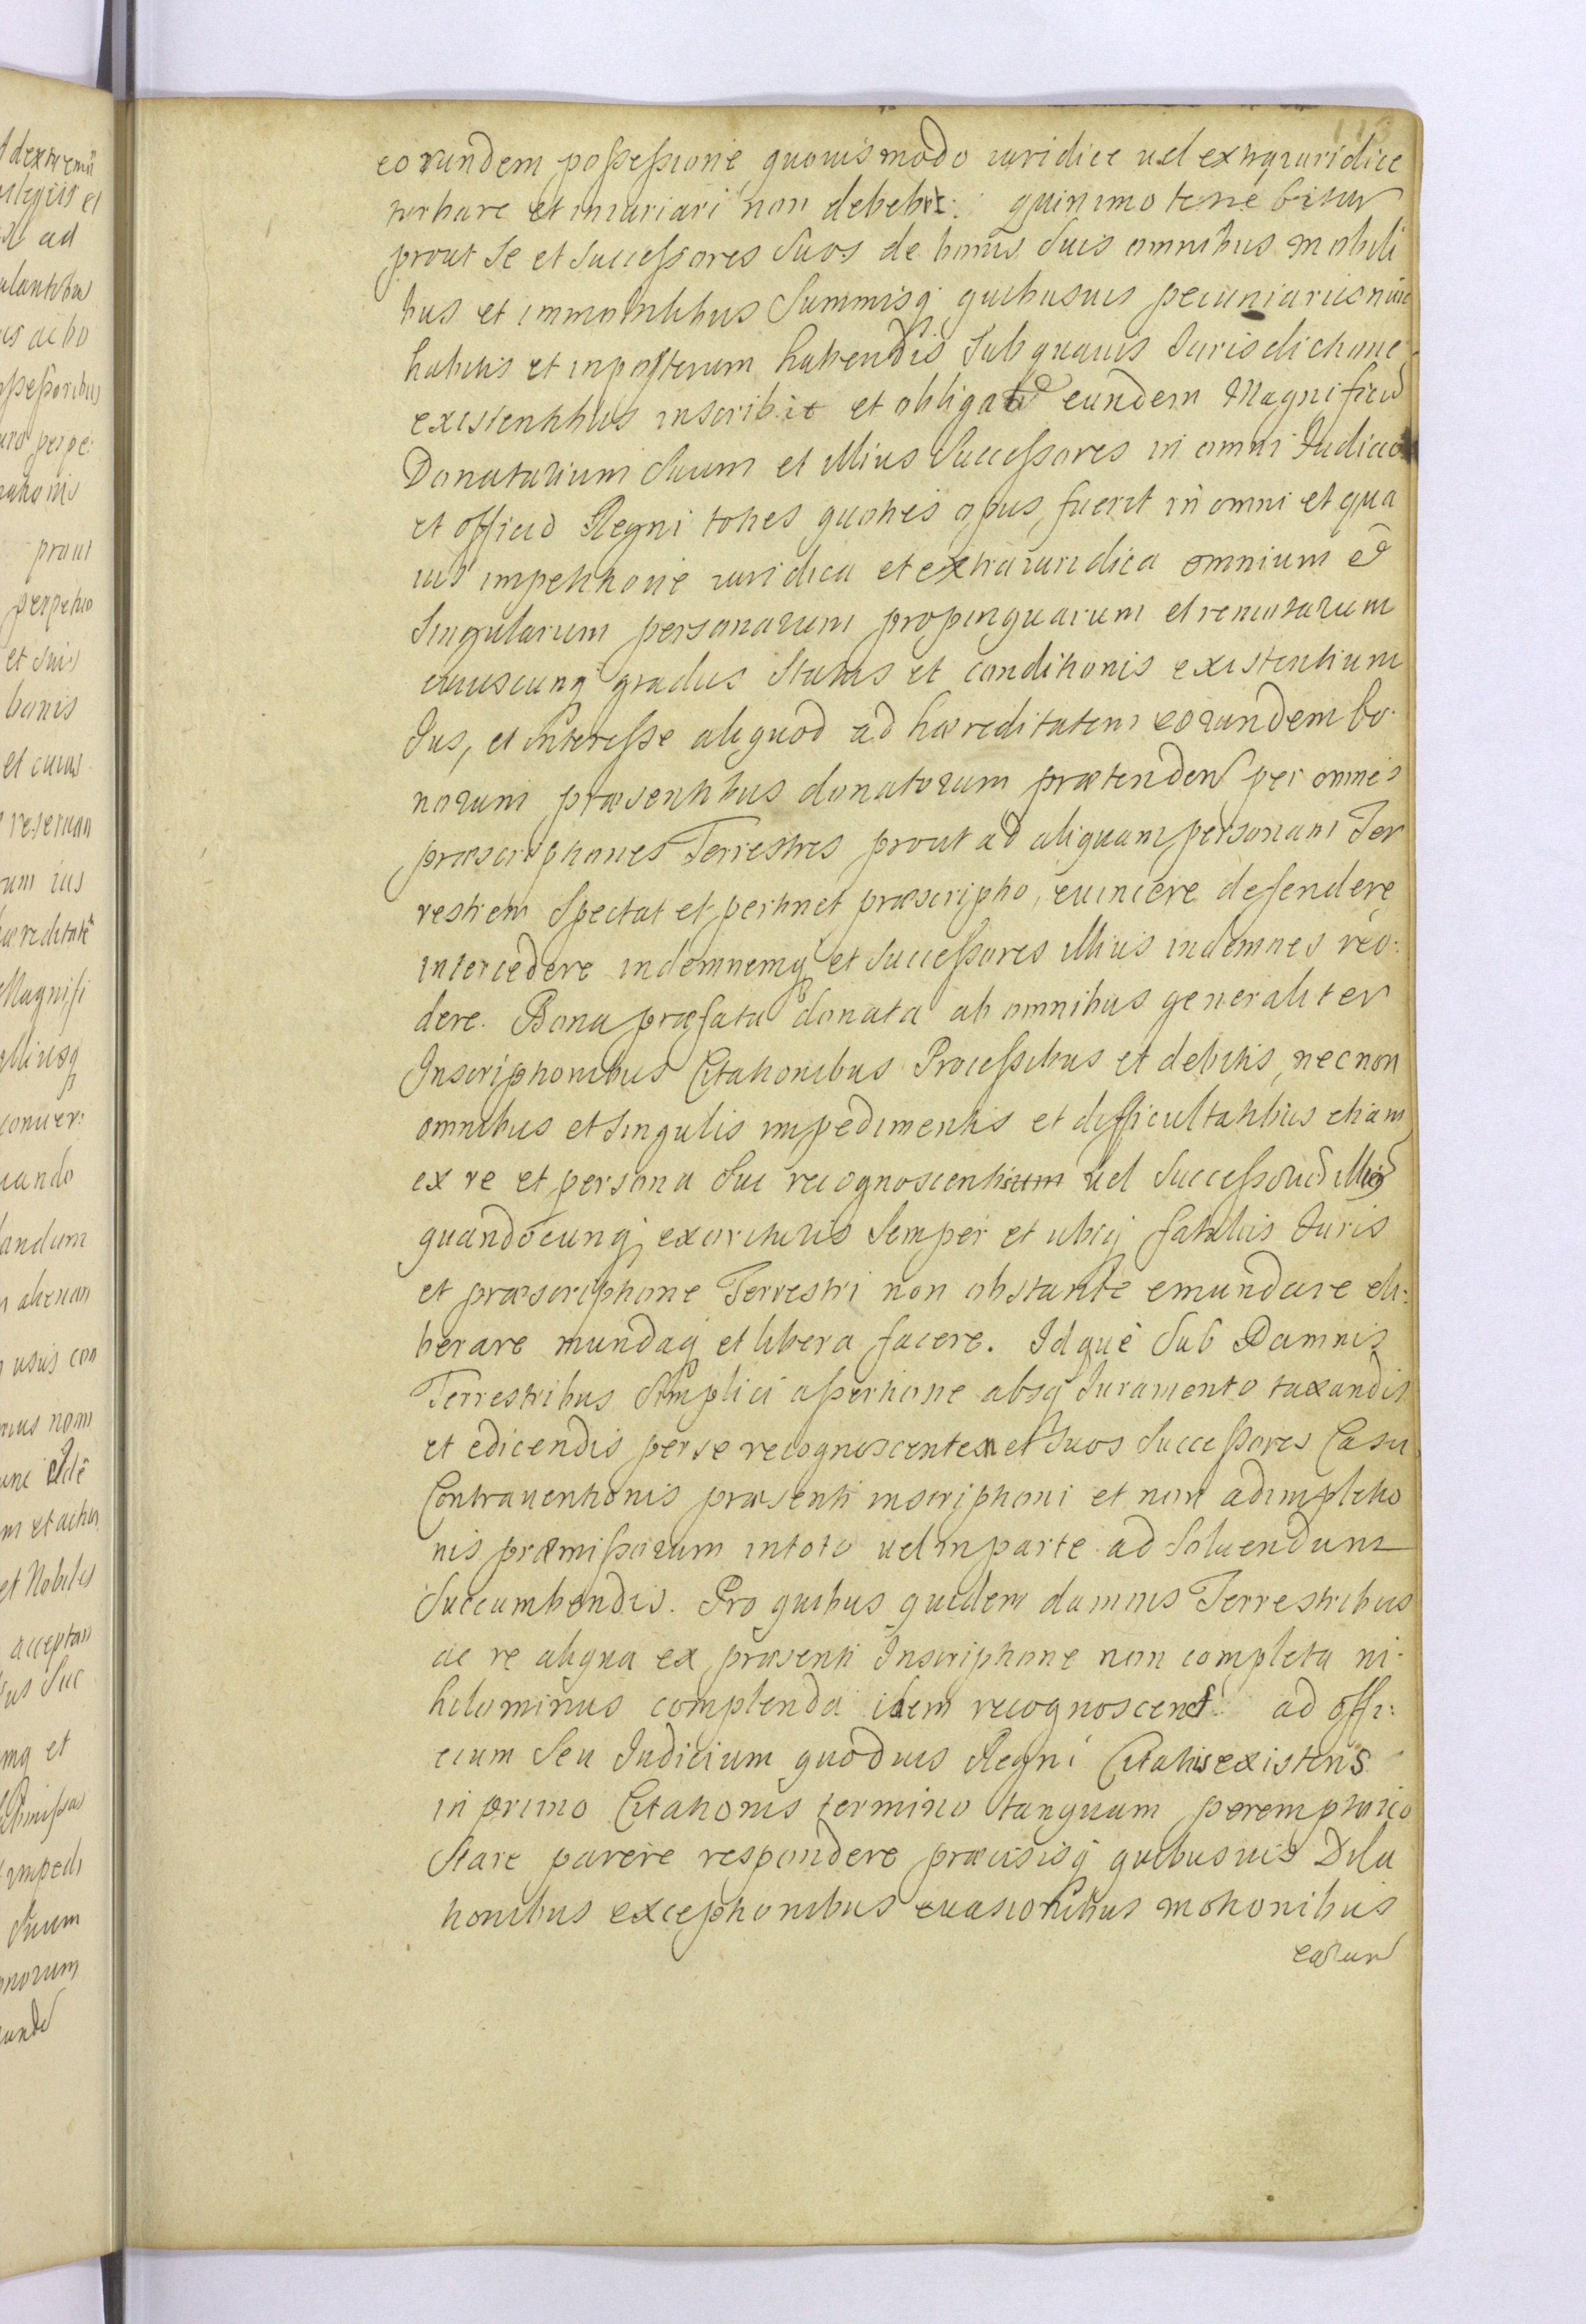 113
eorundem possessione quouismodo iuridice uel extraiuridice
turbare et iniuriari non debebit: quinimo tenebitur
prout se et Successores Suos de bonis Suis omnibus mobili
bus et immobilibus Summisq quibusuis pecuniariis nūc
habitis et inposterum habendis Sub quauis Jurisdictione
existentibus inscribit et obligat eundem Magnificū
Donatarium Suum et illius Successores in omni Judicio
et officio Regni toties quoties opus fuerit in omni et qua
uis impetitione iuridica et extraiuridica omnium et
Singularum personarum propinquarum et remotarum
cuiuscunq gradus Status et conditionis existentium
Jus, et Interesse aliquod ad hæreditatem eorundem bo-
norum præsentibus donatorum prætenden per omnes
præscriptiones Terrestres prout ad aliquam personam Ter
restrem Spectat et pertinet præscriptio, euincere defendere
intercedere indemnemq et Successores illius indemnes red:
dere. Bona præfata donata ab omnibus generaliter
Inscriptionibus Citationibus Processibus et debitis, necnon
omnibus et Singulis impedimentis et difficultatibus etiam
ex re et persona Sui recognoscenti uel Successorū illius
quandocunq exorituris Semper et ubiq fatalius Juris
et præscriptione Terrestri non obstante emundare eli:
berare mundaq et libera facere. Idque Sub Damnis
Terrestribus Simplici assertione absq Juramento taxandis
et edicendis per se recognoscentem et Suos Successores Casu
Contrauentionis præsenti inscriptioni et non adimpletio
nis præmissorum intoto uel inparte ad Soluendum
Succumbendis. Pro quibus quidem damnis Terrestribus
ac re aliqua ex præsenti Inscriptione non completa ni-
hilominus complenda idem recognoscens ad offi:
cium Seu Judicium quoduis Regni Citatus existens
in primo Citationis termino tanquam peremptorio
Stare parere respondere præcisisq quibusuis Dila
tionibus exceptionibus euasionibus motionibus
earum